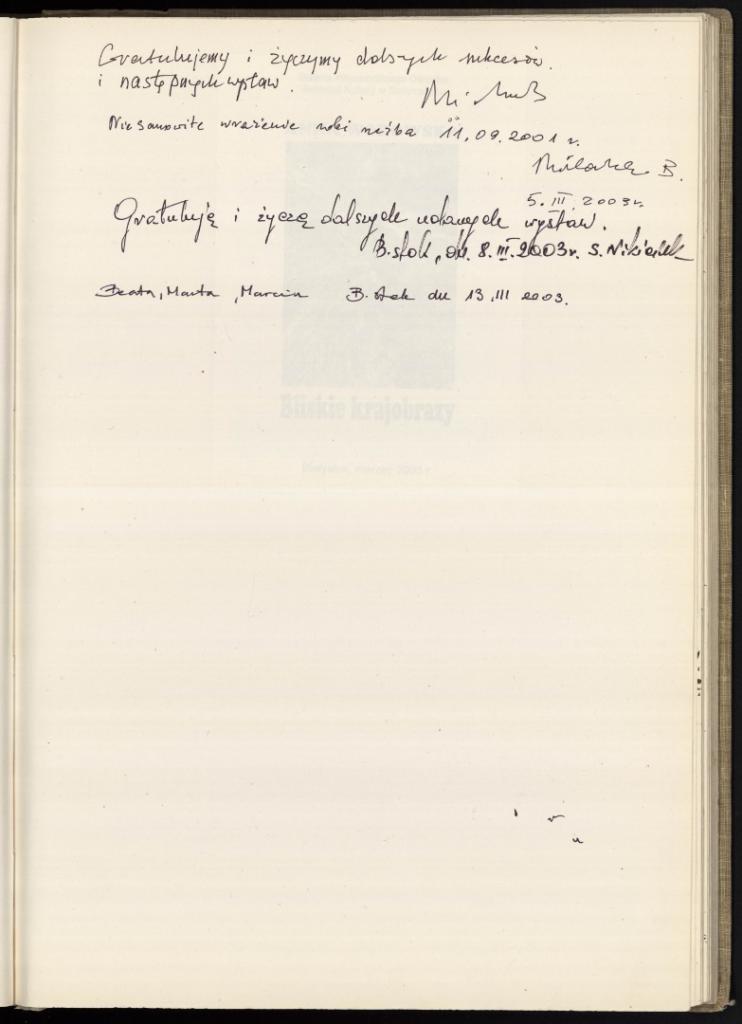 Gratulujemy i życzymy dalszych sukcesów
i następnych wystaw.
Niesamowite wrażenie robi rzeźba "11.09.2001 r.
B.
5. III 2003r.
Gratuluję i życzę dalszych udanych wystaw.
B.stok, dn. 8. III. 2003r. S.
Beata, Marta, Marcin B.stok dn 13.III 2003.
Bliskie krajobrazy